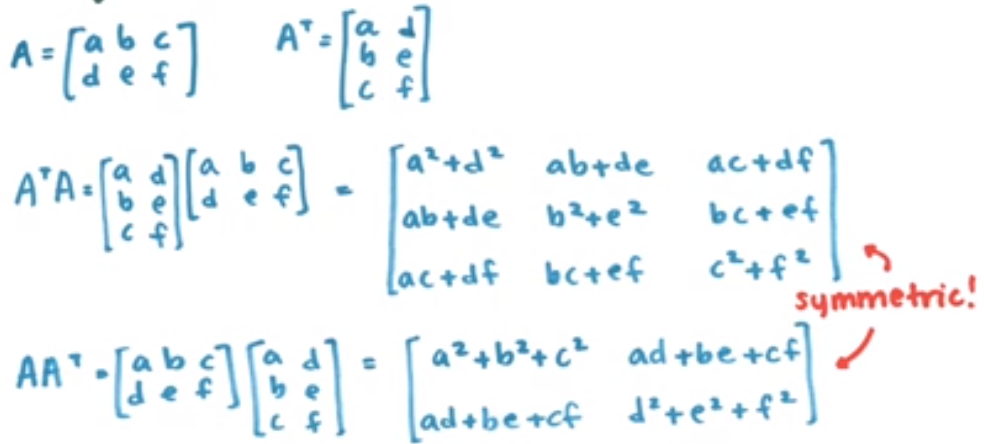 A = [a b c; d e f]    Aᵀ = [a d; b e; c f]
AᵀA = [a d; b e; c f] [a b c; d e f] = [a²+d² ab+de ac+df; ab+de b²+e² bc+ef; ac+df bc+ef c²+f²]
symmetric!
AAᵀ = [a b c; d e f] [a d; b e; c f] = [a²+b²+c² ad+be+cf; ad+be+cf d²+e²+f²]